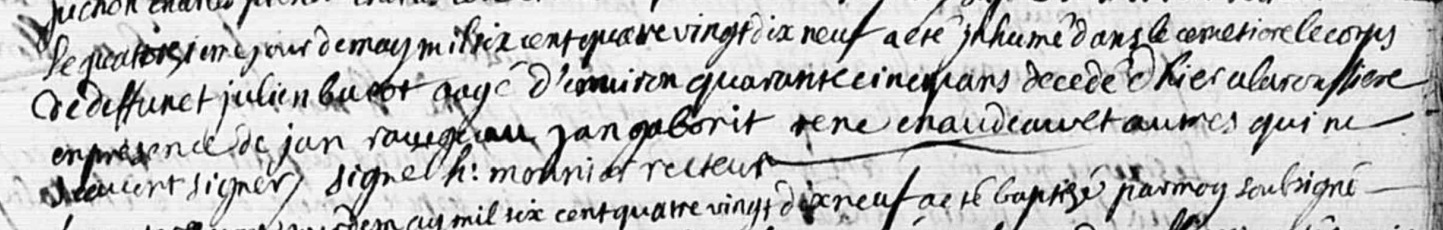 le quatorzieme jour de may mil six cent quatre vingt dix neuf a eté jnhumé dans le cemetiere le corps
de deffunct julien bucot aagé d'environ quarante cincq ans decedé d'hier a la roussliere
en presence de jan jan gaborit rene chaudeau et autres qui ne
scavent signer signé h: mounier recteur
de may mil six cent quatre vingt dix neuf a eté baptisé par moy soubsigné